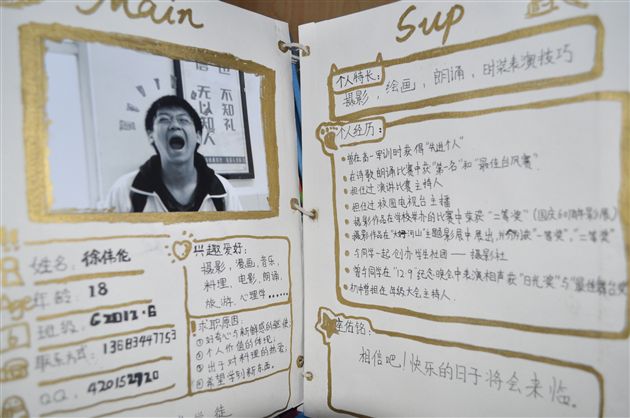 Main
不知礼
无以知人
姓名：徐伟伦
Age年龄：18
班级：G2012·6
联系方式：13683447753
QQ：420152720
兴趣爱好：
摄影，漫画，音乐，
料理，电影，朗诵，
旅游，心理学……
求职原因：
①好奇心与新鲜感的驱使
②个人价值的体现
③出于对料理的热爱
④希望学到新东西。
Sup
个人特长：
摄影，绘画，朗诵，时装表演技巧
个人经历：
曾在高一军训时获得“先进个人”
在诗歌朗诵比赛中获“第一名”和“最佳台风赛”
担任过演讲比赛主持人
担任过校园电视台主播
摄影作品在学校举办的比赛中荣获“二等奖”（国庆60周年影展）
摄影作品在“大好河山”主题影展中展出，并分别获“一等奖”，“二等奖”
与同学一起创办学生社团——摄影社
曾与同学在“12·9”纪念晚会中表演相声获“目光奖”与“最佳舞台奖
初中曾担任年级大会主持人.
座佑铭：
相信吧！快乐的日子将会来临.